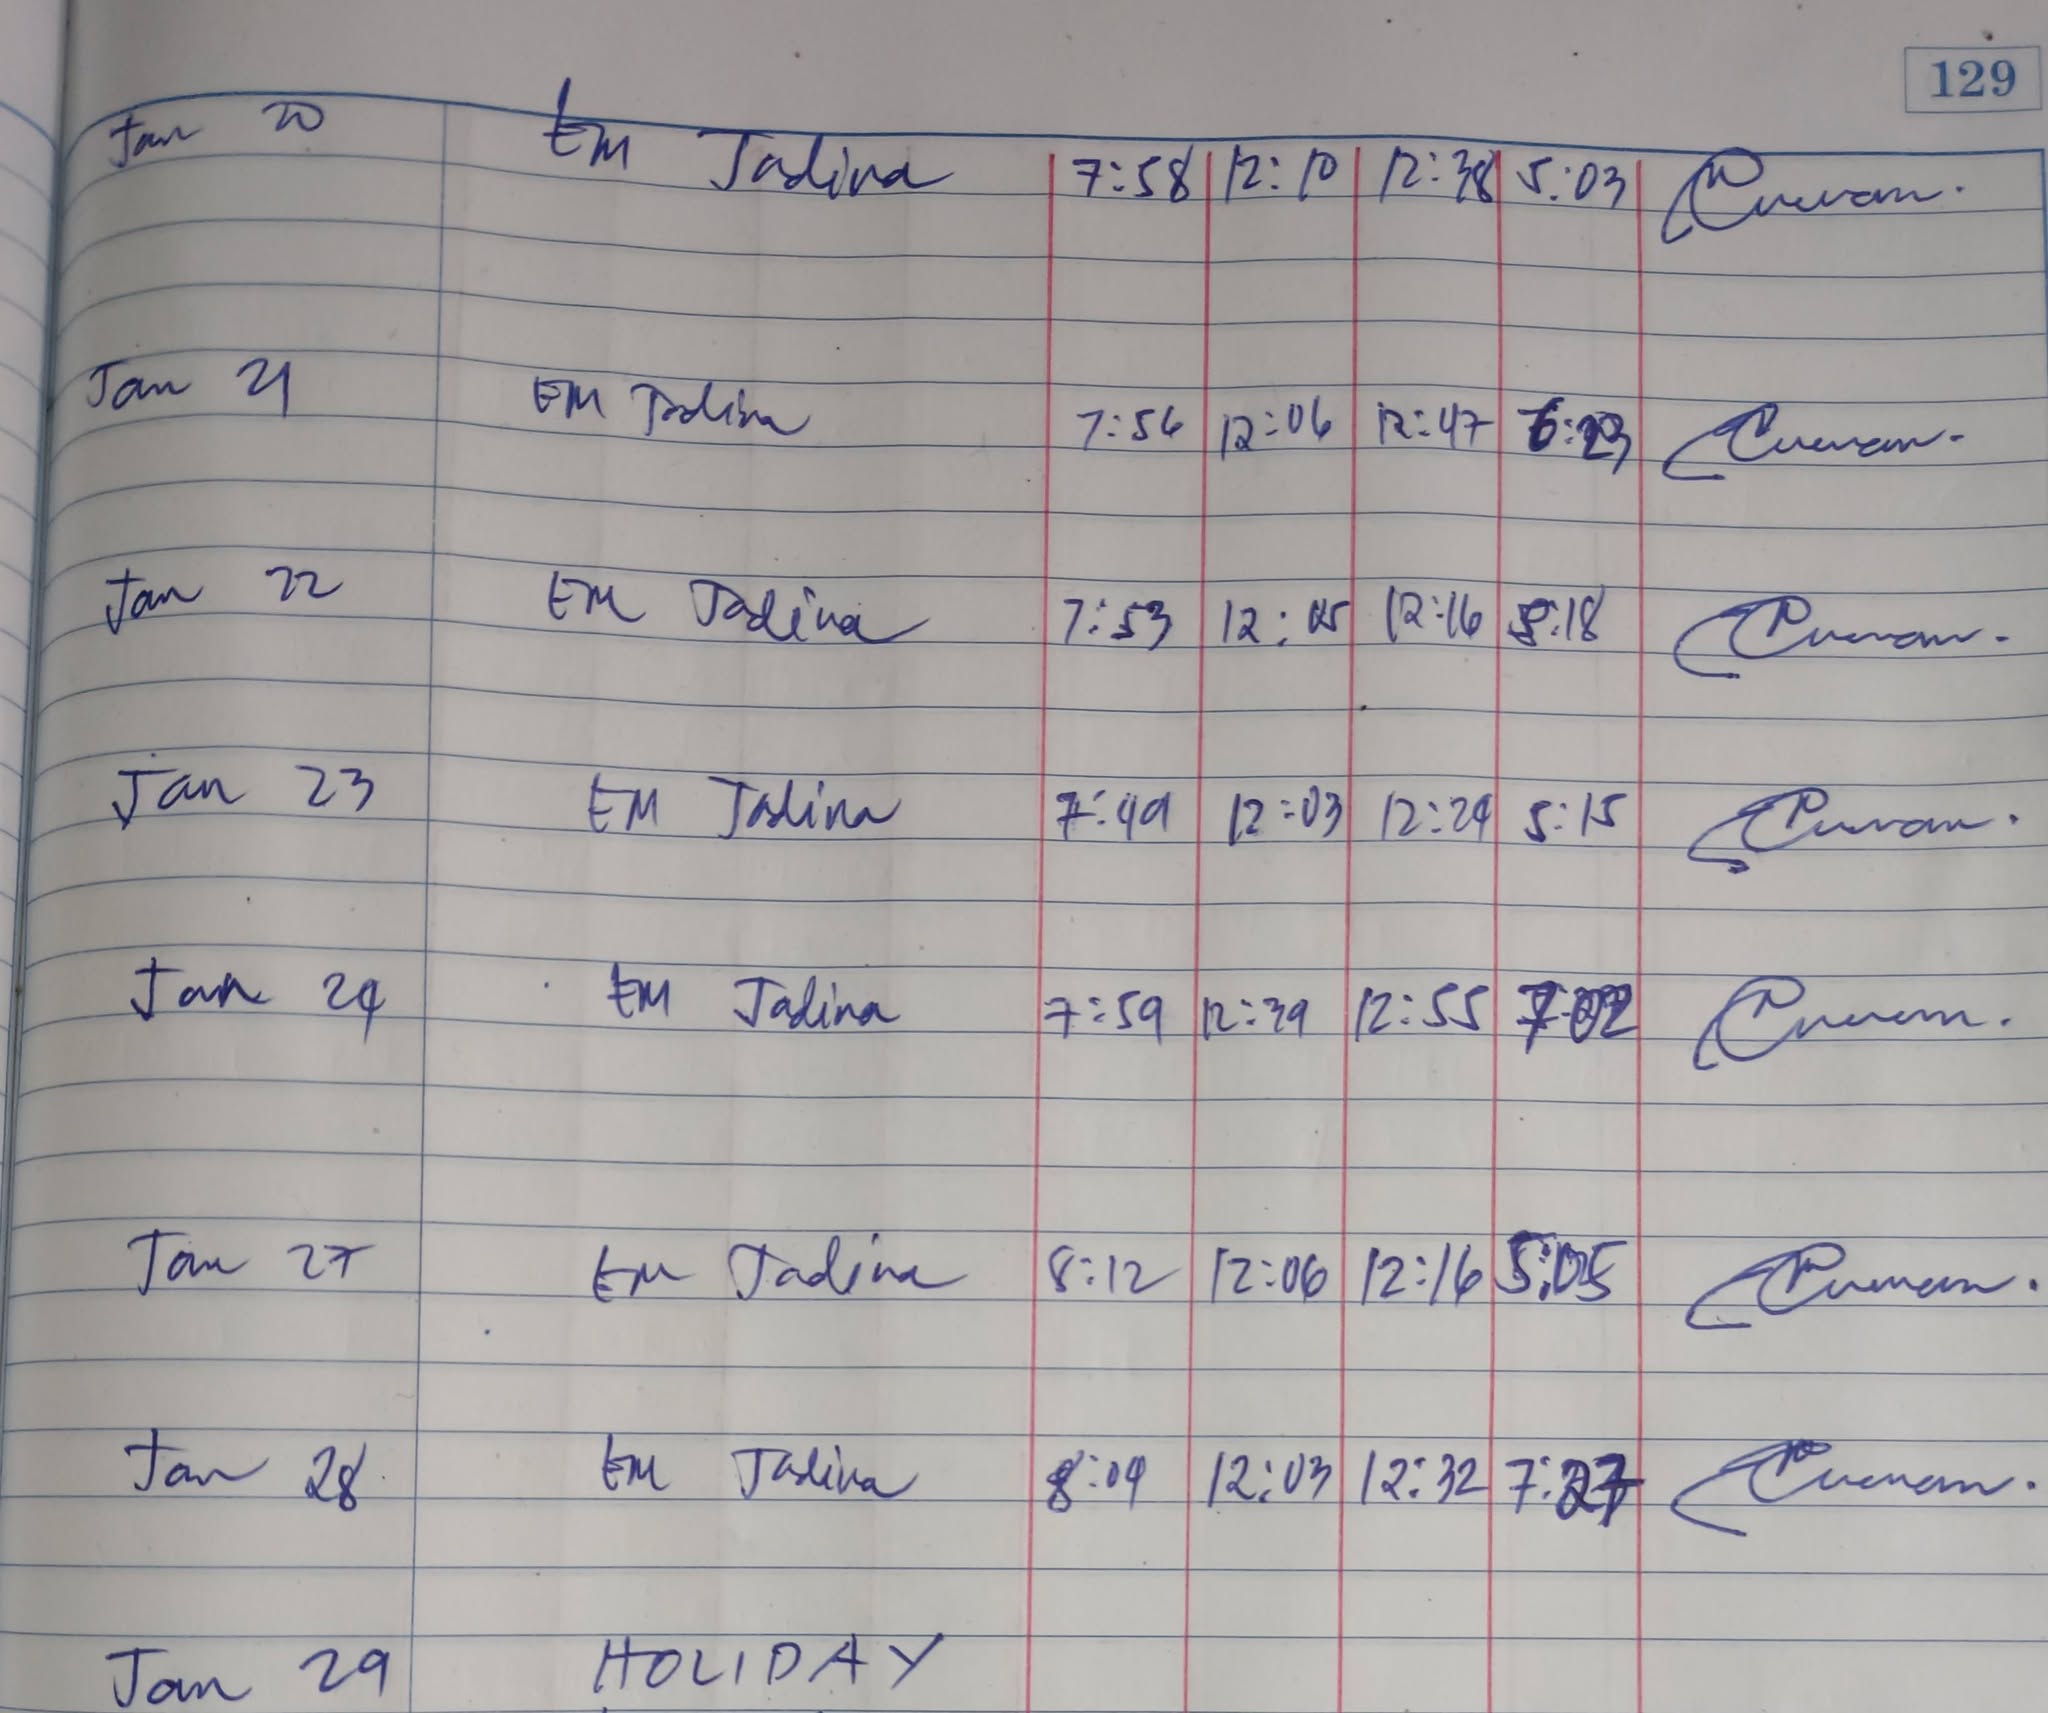 129
Jan 20 EM Jadina 7:58 12:10 12:38 5:03
Jan 21 EM Jadina 7:56 12:06 12:47
Jan 22 EM Jadina 7:53 12:05 12:16 5:18
Jan 23 EM Jadina 7:49 12:03 12:29 5:15
Jan 24 EM Jadina 7:59 12:39 12:55 7:02
Jan 27 EM Jadina 8:12 12:06 12:16 5:05
Jan 28 EM Jadina 8:09 12:03 12:32 7:27
Jan 29 HOLIDAY